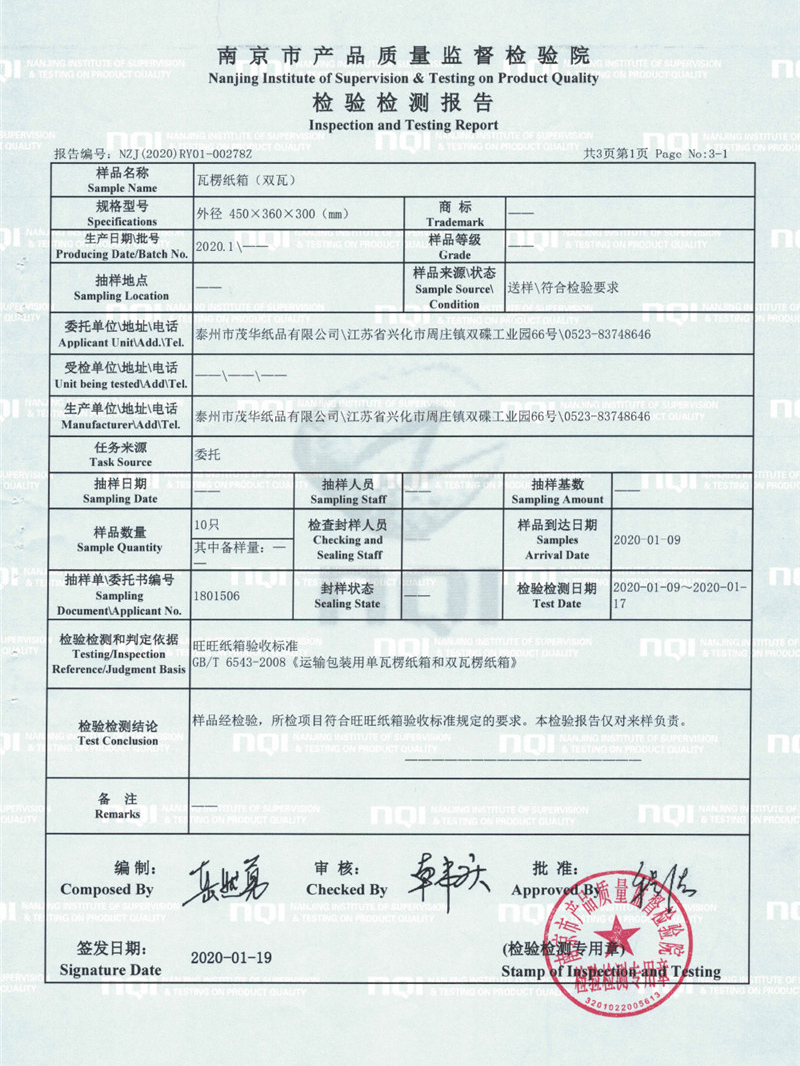 南京市产品质量监督检验院
Nanjing Institute of Supervision & Testing on Product Quality
检验检测报告
Inspection and Testing Report
报告编号：NZJ(2020)RY01-00278Z 共3页第1页 Page No:3-1
样品名称
Sample Name
瓦楞纸箱（双瓦）
规格型号
Specifications
外径 450×360×300（mm）
商 标
Trademark
——
生产日期\批号
Producing Date/Batch No.
2020.1\——
样品等级
Grade
——
抽样地点
Sampling Location
——
样品来源\状态
Sample Source\
Condition
送样\符合检验要求
委托单位\地址\电话
Applicant Unit\Add.\Tel.
泰州市茂华纸品有限公司\江苏省兴化市周庄镇双碟工业园66号\0523-83748646
受检单位\地址\电话
Unit being tested\Add\Tel.
——\——\——
生产单位\地址\电话
Manufacturer\Add\Tel.
泰州市茂华纸品有限公司\江苏省兴化市周庄镇双碟工业园66号\0523-83748646
任务来源
Task Source
委托
抽样日期
Sampling Date
——
抽样人员
Sampling Staff
——
抽样基数
Sampling Amount
——
样品数量
Sample Quantity
10只
其中备样量：—
—
检查封样人员
Checking and
Sealing Staff
——
样品到达日期
Samples
Arrival Date
2020-01-09
抽样单\委托书编号
Sampling
Document\Applicant No.
1801506
封样状态
Sealing State
——
检验检测日期
Test Date
2020-01-09～2020-01-
17
检验检测和判定依据
Testing/Inspection
Reference/Judgment Basis
旺旺纸箱验收标准
GB/T 6543-2008《运输包装用单瓦楞纸箱和双瓦楞纸箱》
检验检测结论
Test Conclusion
样品经检验，所检项目符合旺旺纸箱验收标准规定的要求。本检验报告仅对来样负责。
备 注
Remarks
——
编制：
Composed By
审核：
Checked By
批准：
Approved By
签发日期：
Signature Date
2020-01-19
(检验检测专用章)
Stamp of Inspection and Testing
南京市产品质量监督检验院
检验检测专用章
3201022005613
nqi
NANJING INSTITUTE OF SUPERVISION
& TESTING ON PRODUCT QUALITY